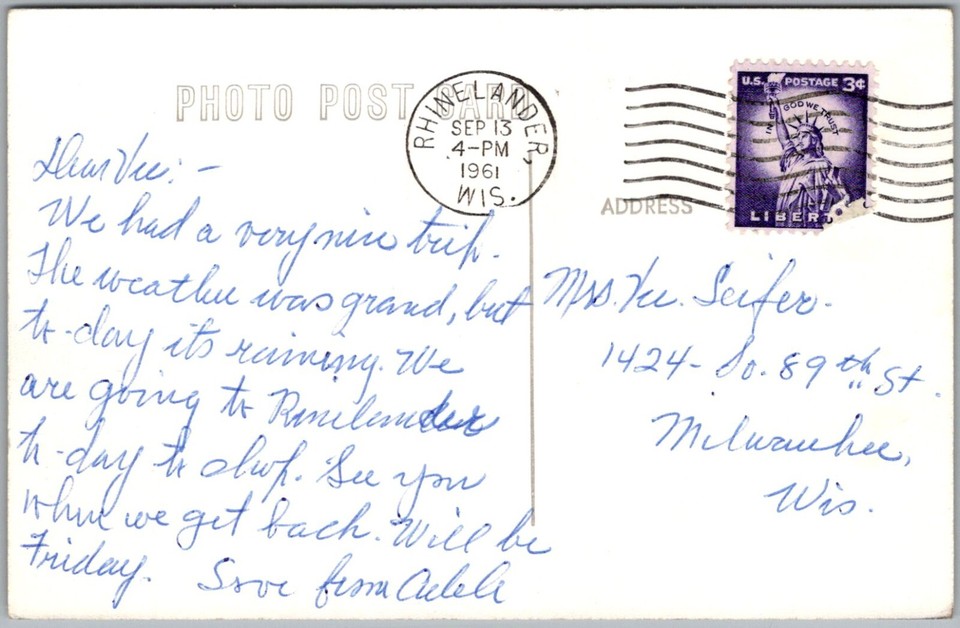 PHOTO POST CARD
RHINELANDER,
SEP 13
4-PM
1961
WIS.
U.S. POSTAGE 3¢
IN GOD WE TRUST
LIBER
ADDRESS
Dear Vee: -
We had a very nice trip.
The weather was grand, but
to-day its raining. We
are going to Rinelander
to-day to shop. See you
when we get back. Will be
Friday. Love from Adele
Mrs. Vee. Seifer.
1424- So. 89th St.
Milwaukee,
Wis.